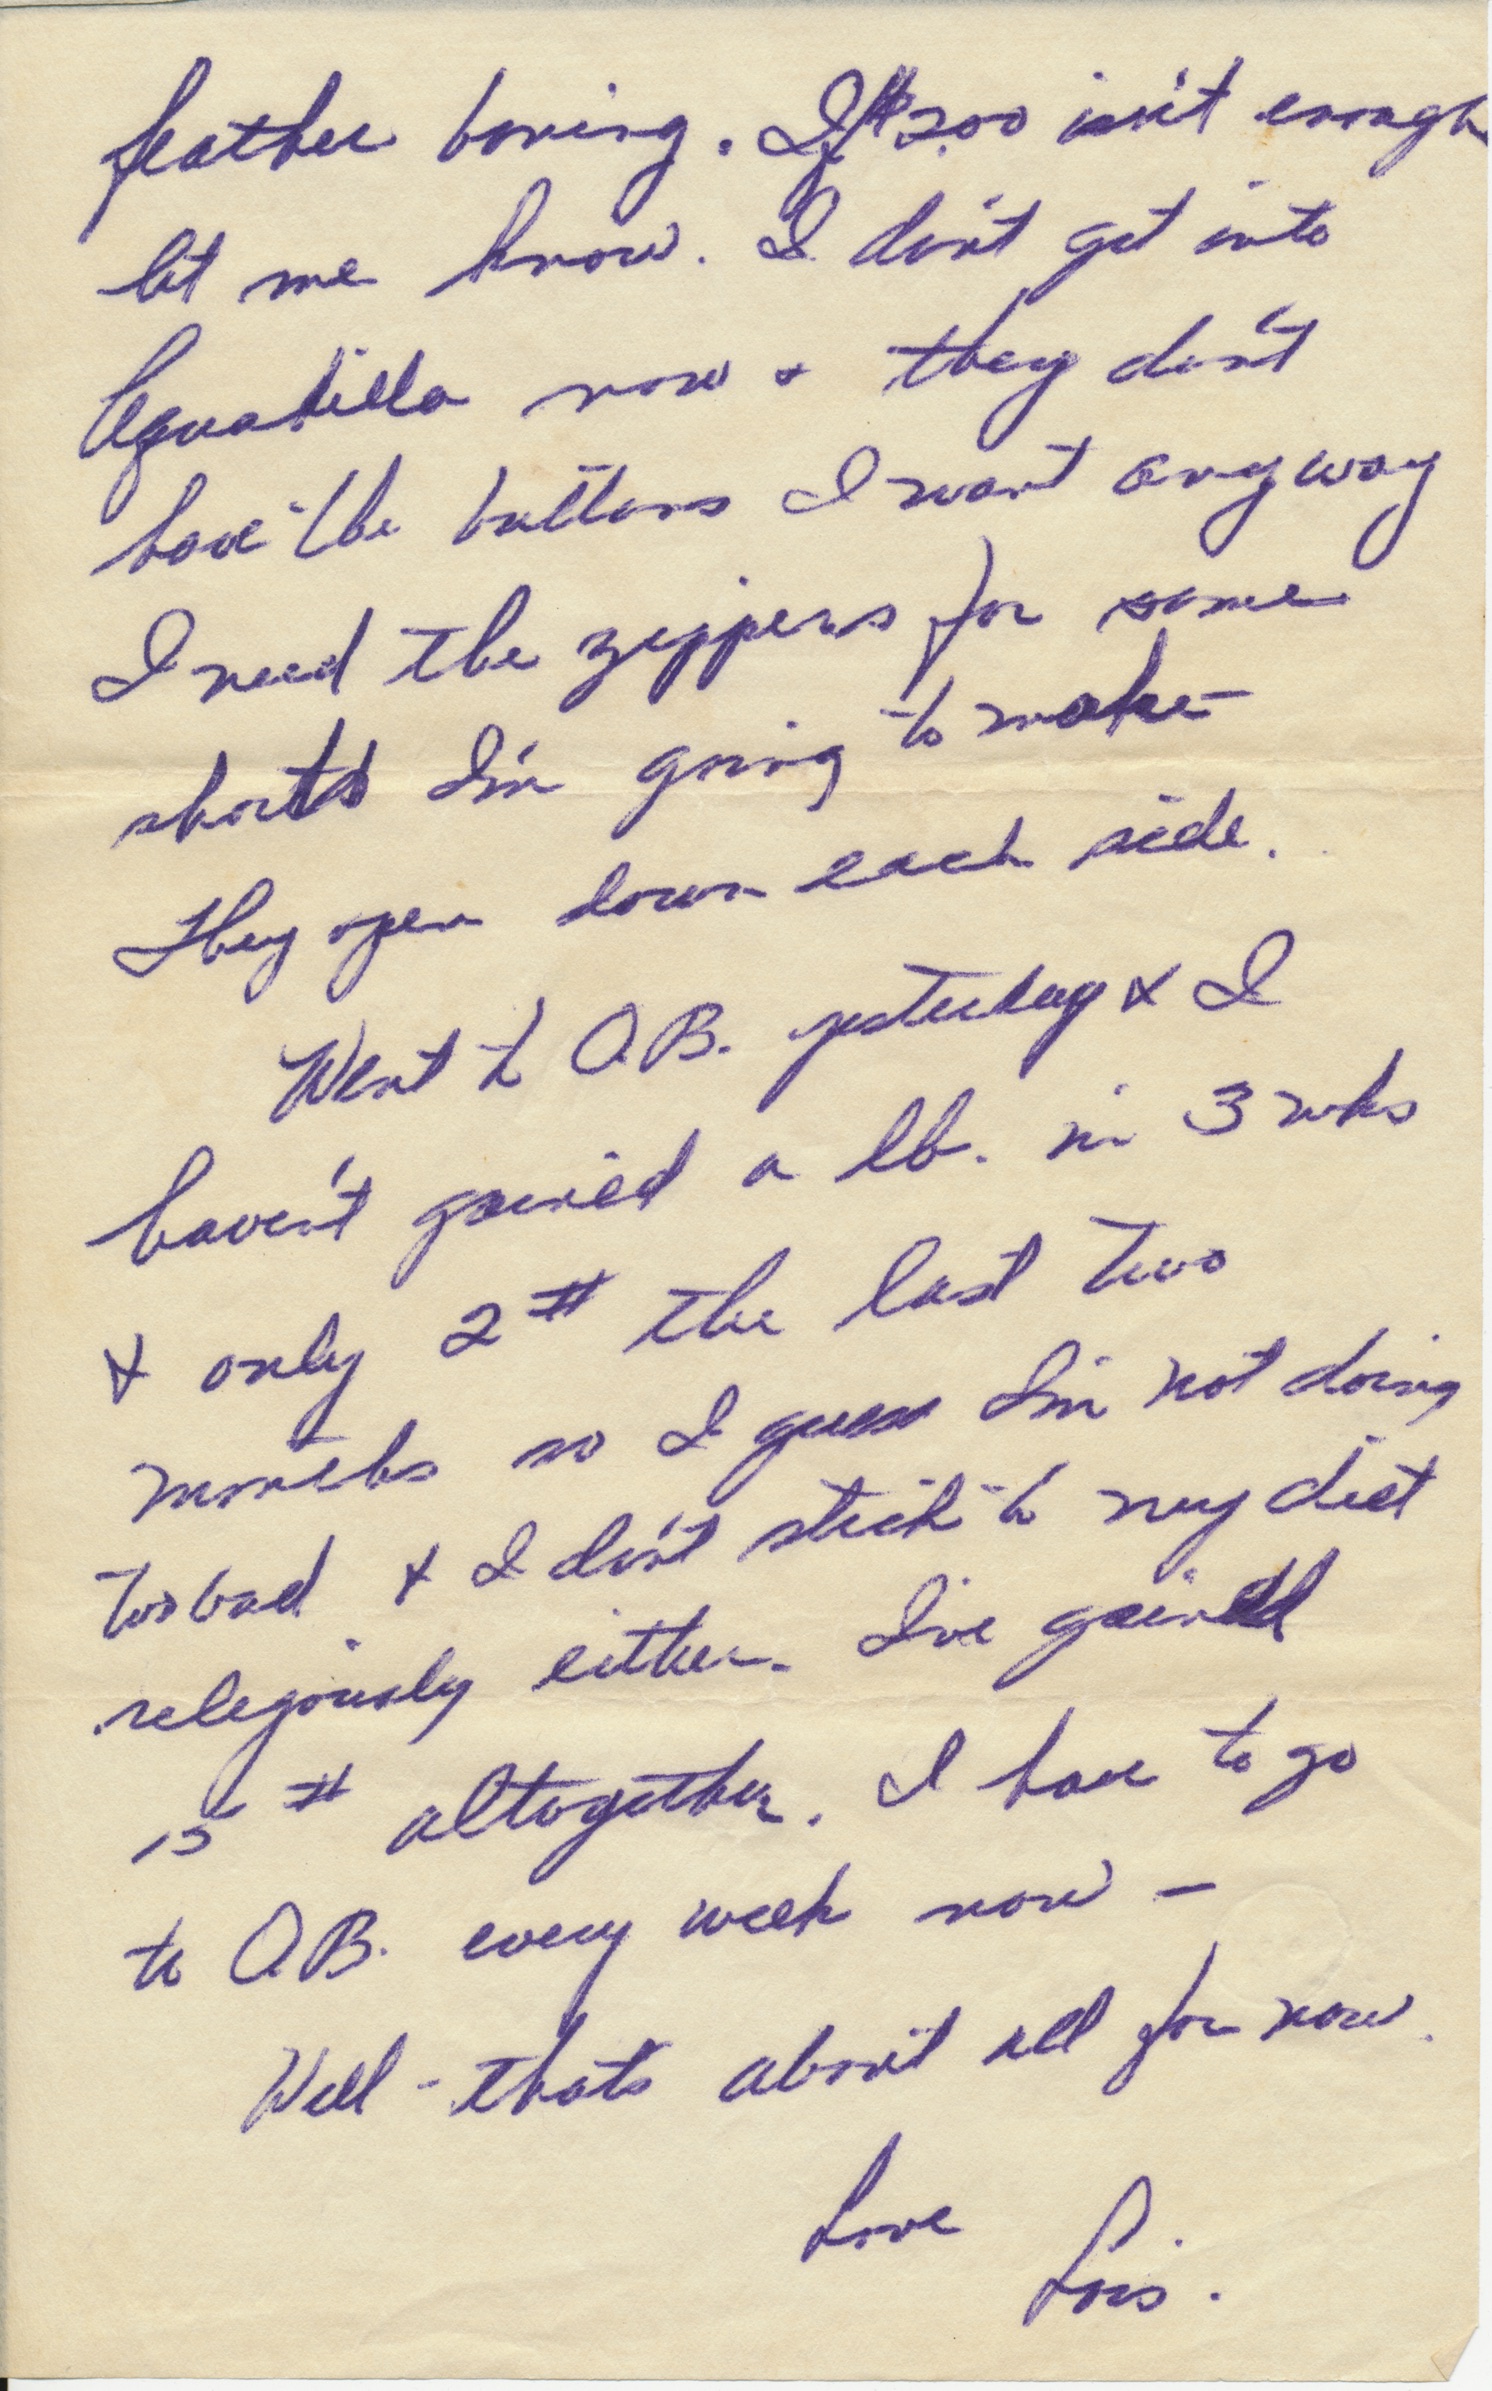 feather boning. If $2.00 isn't enough
let me know. I don't get into
Aguadilla now & they don't
have the buttons I want anyway
I need the zippers for some
shorts I'm going to make –
They open down each side.
Went to O.B. yesterday & I
haven't gained a lb. in 3 wks
& only 2# the last two
months so I guess I'm not doing
too bad & I don't stick to my diet
relegiously either. I've gained
15# altogether. I have to go
to O.B. every week now –
Well - thats about all for now.
Love
Lois.